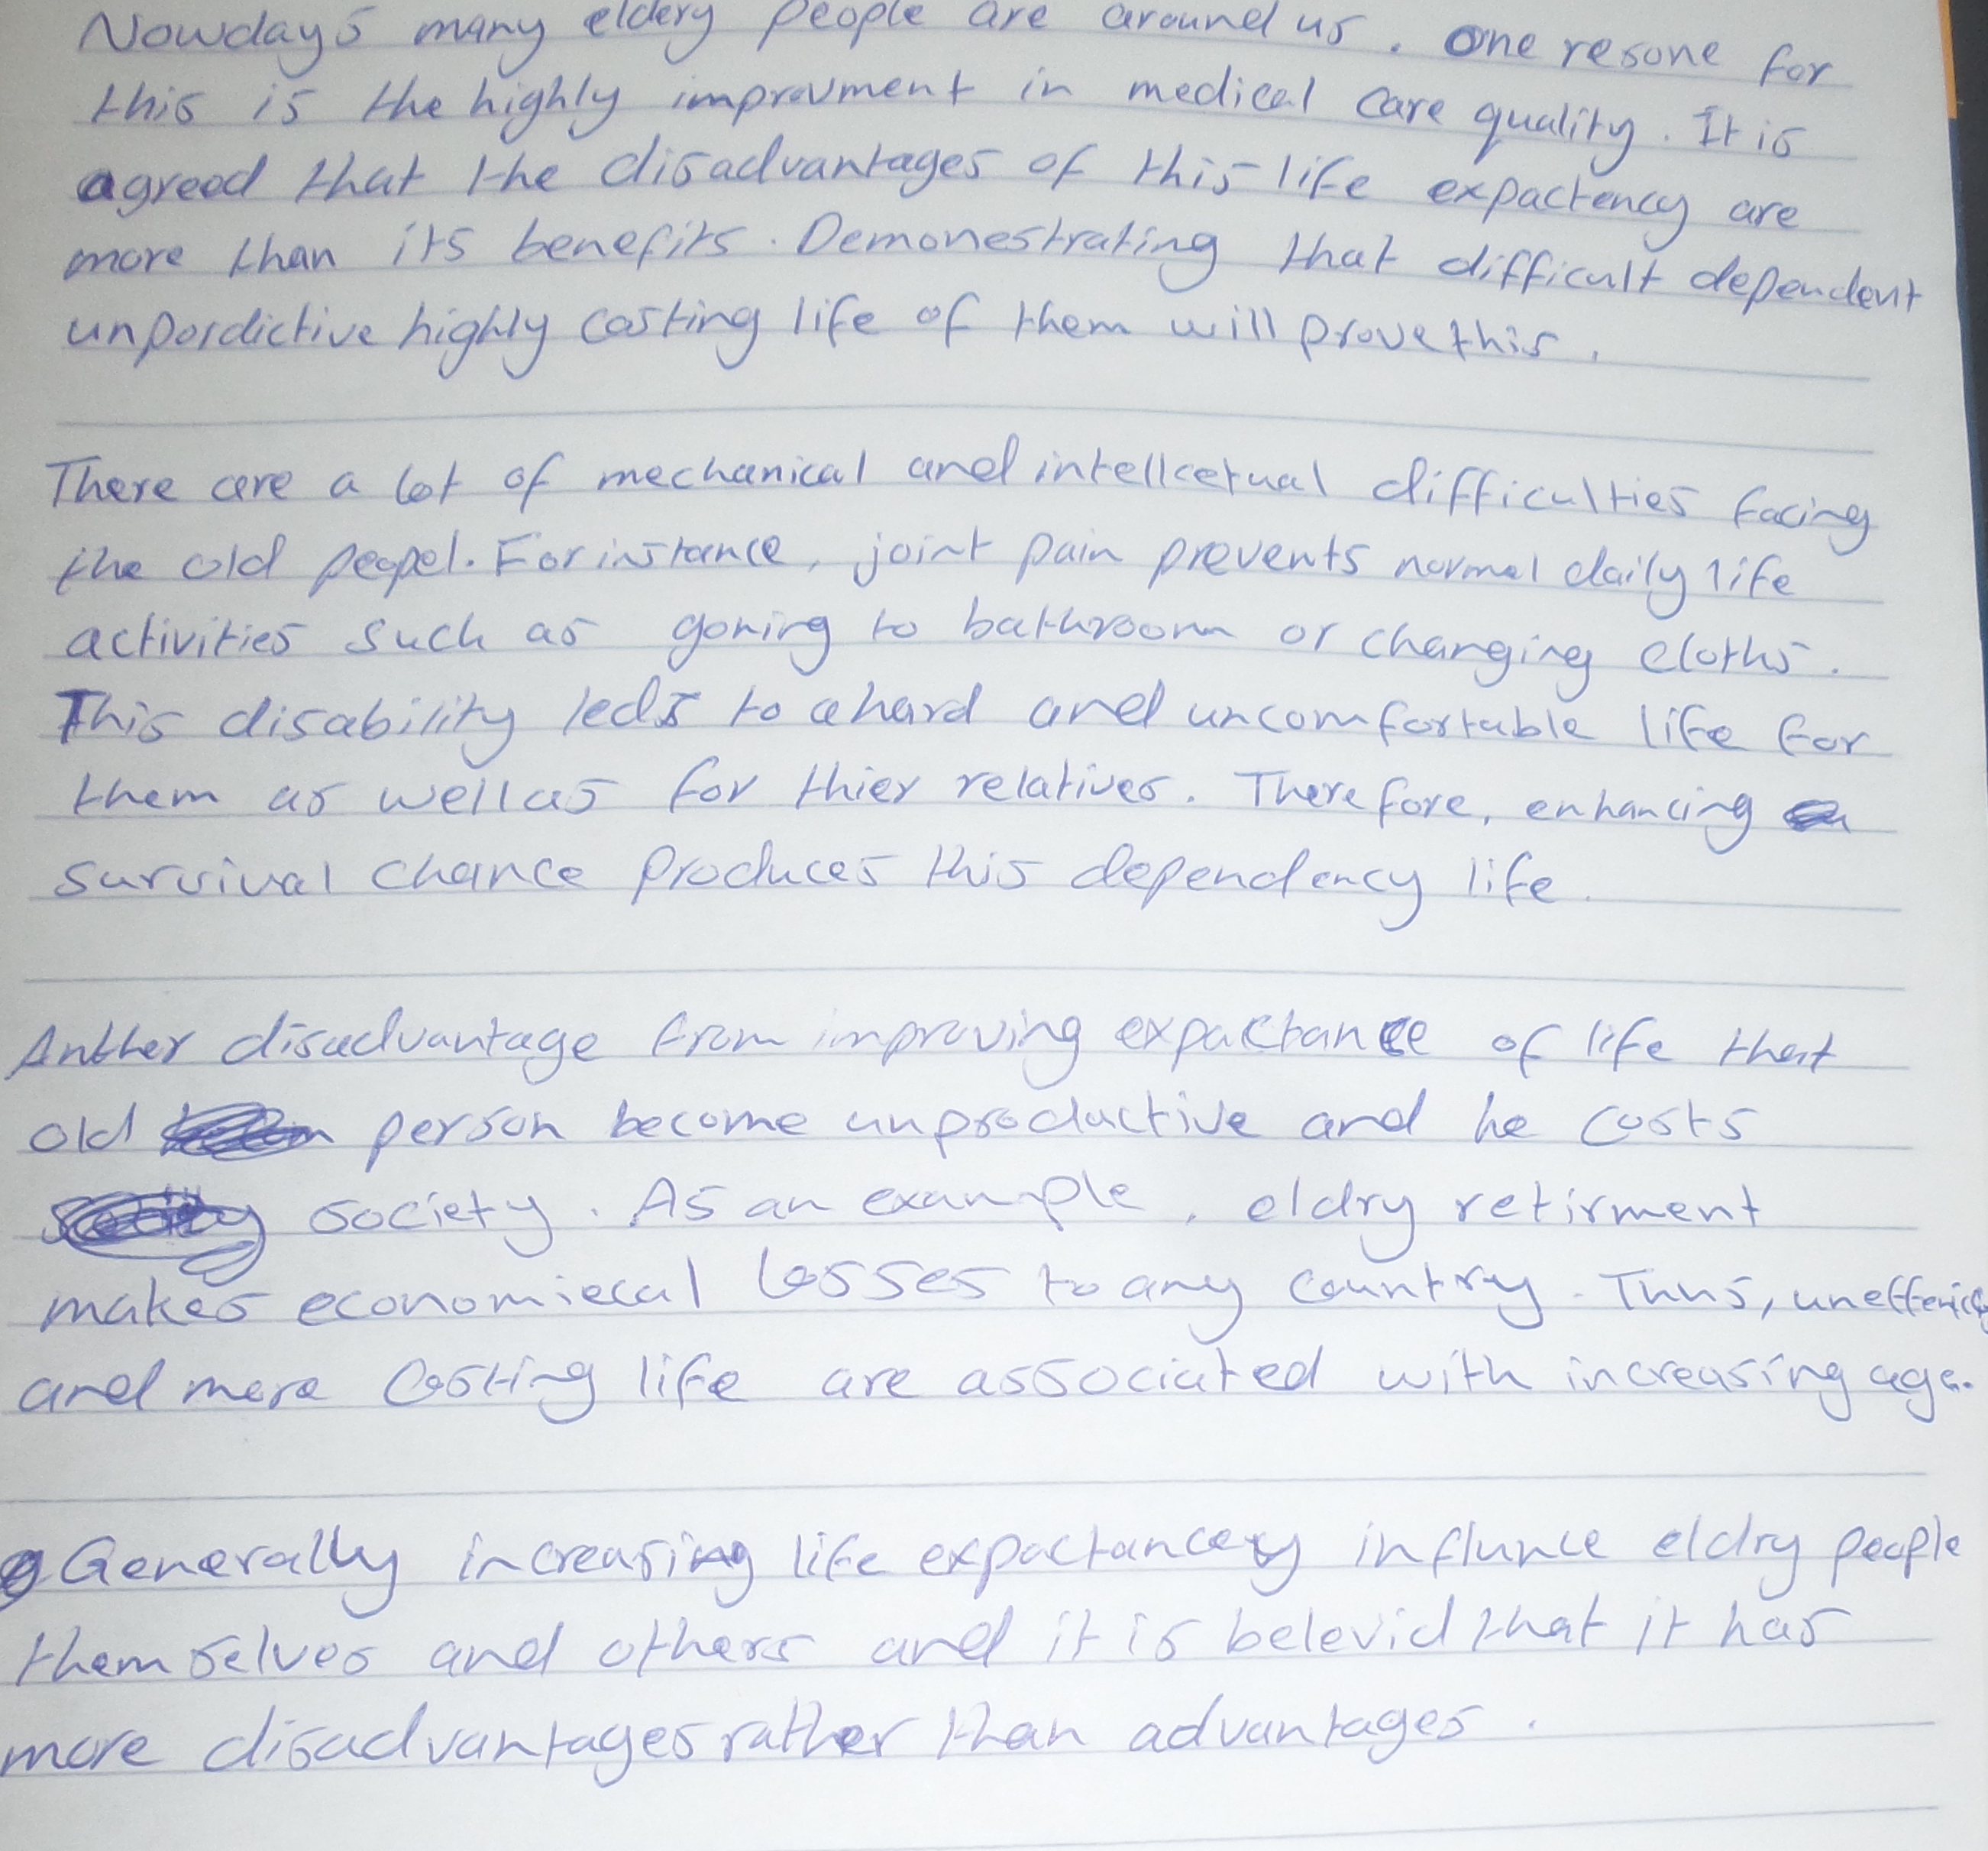 Nowdays many eldery people are around us. One resone for
this is the highly improvment in medical care quality. It is
agreed that the disadvantages of this life expactency are
more than its benefits. Demonestrating that difficult dependent
unpordictive highly costing life of them will prove this.
There are a lot of mechanical and intellcetual difficulties facing
the old peopel. For instance, joint pain prevents normal daily life
activities such as goning to bathroom or changing cloths.
This disability leds to a hard and uncomfortable life for
them as well as for thier relatives. Therefore, enhancing
survival chance produces this dependency life.
Anther disadvantage from improving expactance of life that
old person become unproductive and he costs
society. As an example, eldry retirment
makes economiecal losses to any country. Thus,
and more costing life are associated with increasing age.
Generally increasing life expactancey influnce eldry people
themselves and others and it is belevid that it has
more disadvantages rather than advantages.